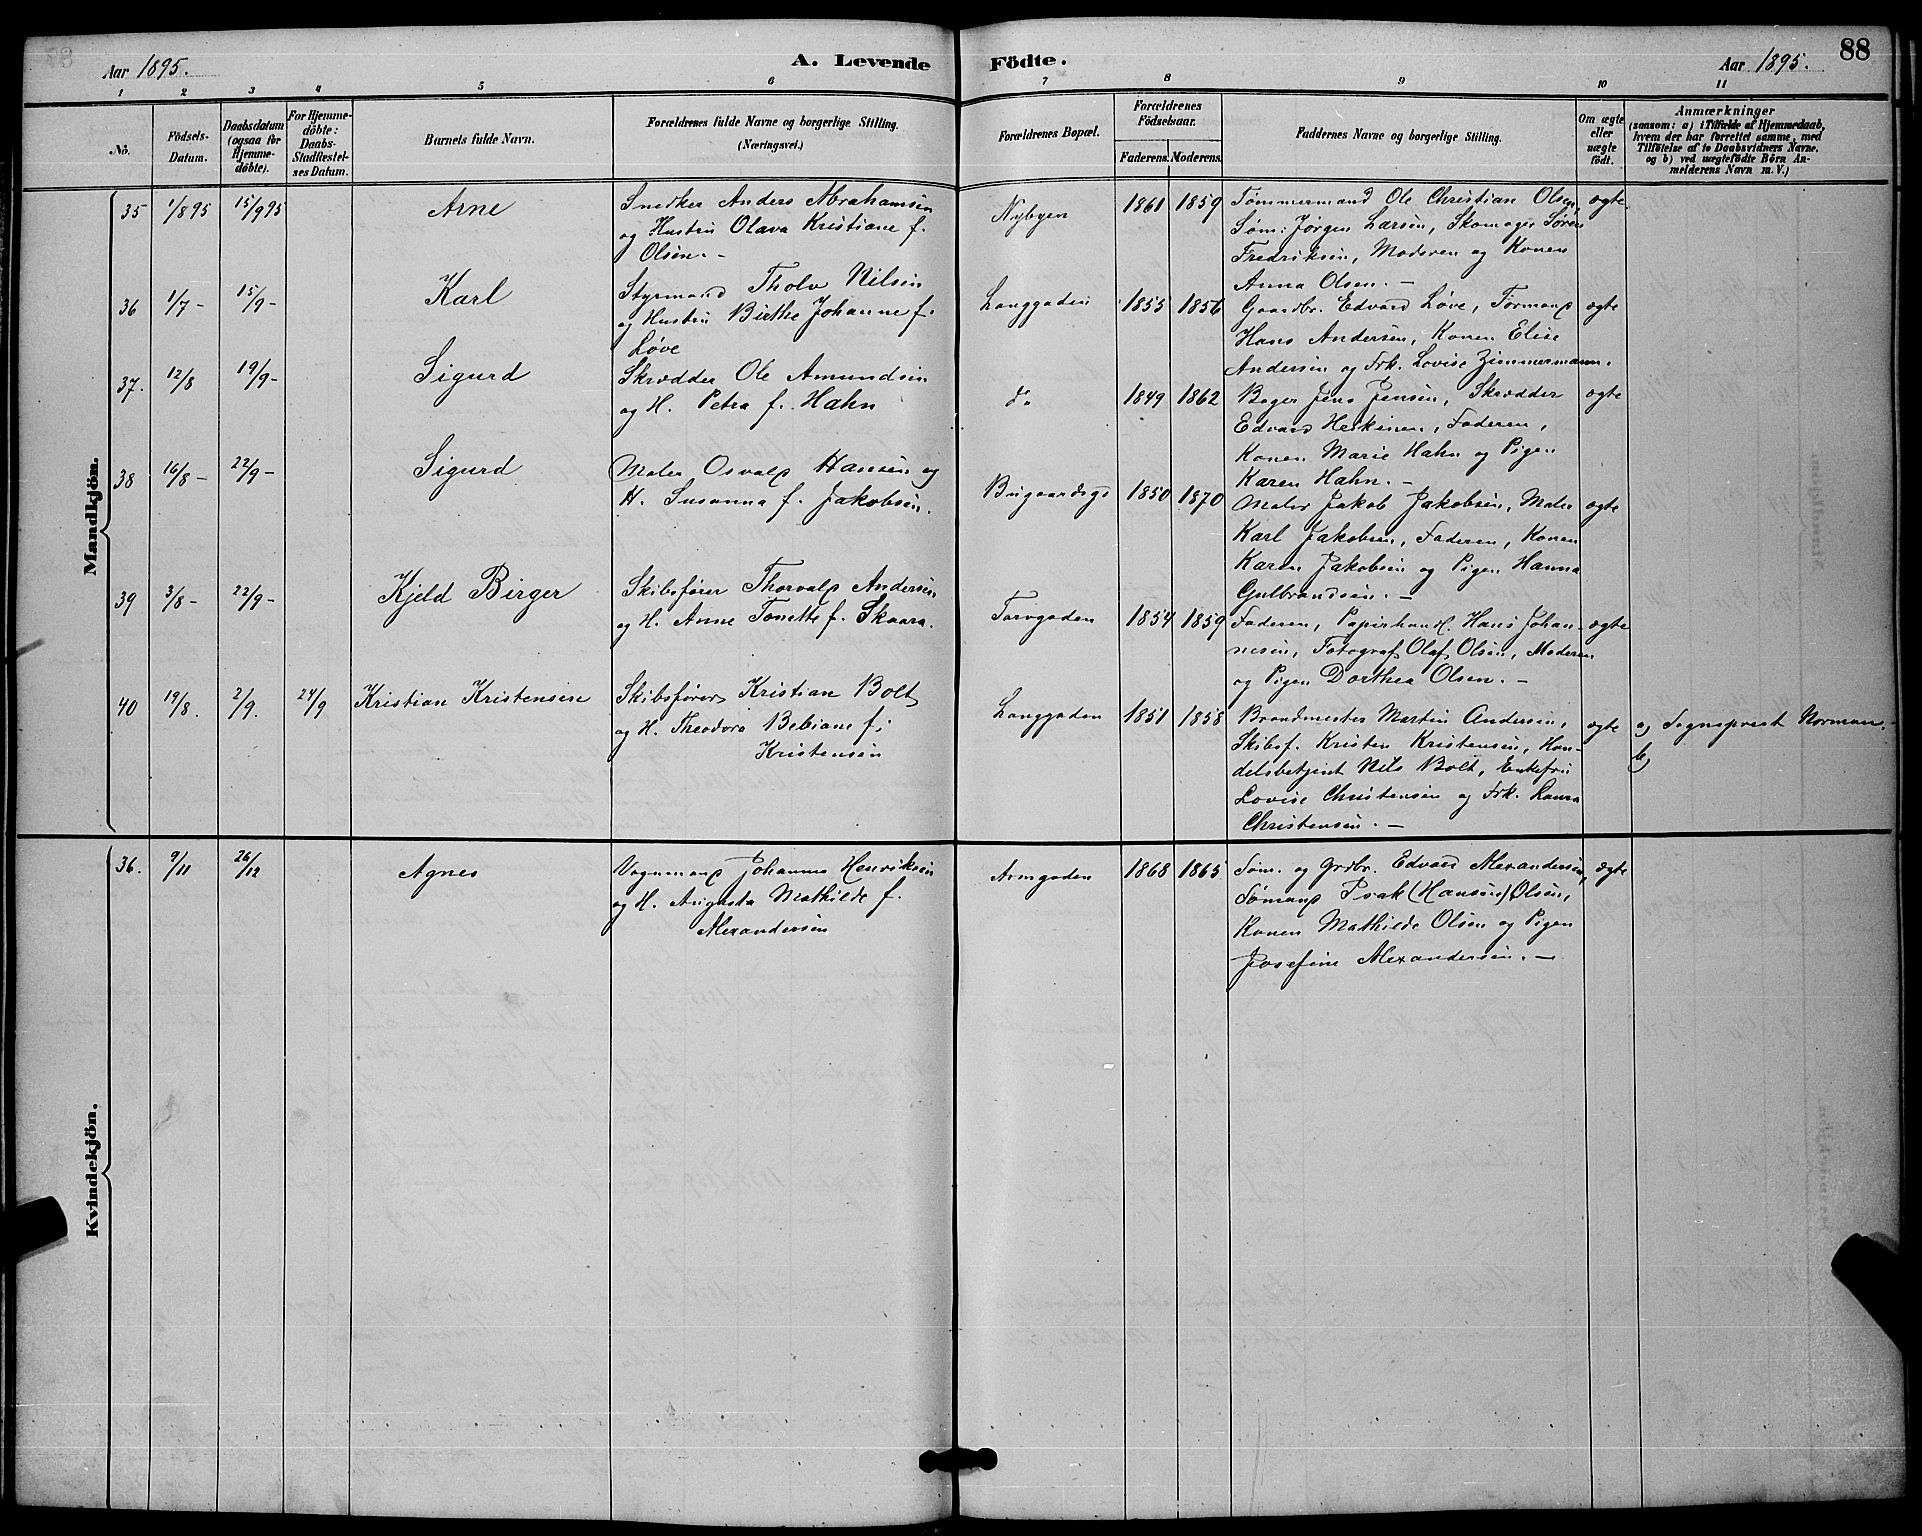 Aar 1895. A. Levende Födte. Aar 1895. 88
1 2 3 4 5 6 7 8 9 10 11
No.
Födsels-
Datum.
Daabsdatum
(ogsaa for
Hjemme-
döbte).
For Hjemme-
döbte:
Daabs-
Stadfæstel-
ses Datum.
Barnets fulde Navn.
Forældrenes fulde Navne og borgerlige Stilling.
(Næringsvei.)
Forældrenes Bopæl.
Forældrenes
Födselsaar.
Faderens. Moderens.
Faddernes Navne og borgerlige Stilling.
Om ægte
eller
uægte
födt.
Anmærkninger
(saasom: a) i Tilfælde af Hjemmedaab,
hvem der har forrettet samme, med
Tilföielse af to Daabsvidners Navne,
og b) ved uægtefödte Börn An-
melderens Navn m. V.)
Mandkjön.
35 1/8 95 15/9 95 Arne
Snedker Anders Abrahamsen
og Hustru Olava Kristiane f.
Olsen. -
Nybyen 1861 1859
Tømmermand Ole Christian Olsen,
Søm: Jørgen Larsen, Skomager Søren
Fredriksen, Moderen og Konen
Anna Olsen. -
ægte
36 1/7 - 15/9 - Karl
Styrmand Tholv Nilsen
og Hustru Birthe Johanne f.
Løve
Langgaden 1855 1856
Gaardbr. Edvard Løve, Formand
Hans Andersen, Konen Elise
Andersen og Frk. Lovise Zimmermann.
ægte
37. 12/8 19/9 - Sigurd
Skrædder Ole Amundsen
og H. Petra f. Hahn
do 1849 1862
Bager Jens Jensen, Skrædder
Edvard , Faderen,
Konen Marie Hahn og Pigen
Karen Hahn. -
ægte
38 16/8 - 22/9 - Sigurd
Maler Osvald Hansen og
H. Susanna f. Jakobsen.
1850 1870
Maler Jakob Jakobsen, Maler
Karl Jakobsen, Faderen, Konen
Karen Jakobsen og Pigen Hanna
Gulbrandsen. -
ægte
39 3/8 - 22/9 - Kjeld Birger
Skibsfører Thorvald Andersen
og H. Anne Tonette f. Skaara.
Torvgaden 1854 1859
Faderen, Papirhandl. Hans Johan-
nesen, Fotograf Olaf Olsen, Moderen
og Pigen Dorthea Olsen. -
ægte
40 19/8. 2/9. 24/9 Kristian Kristensen
Skibsfører Kristian Bolt
og H. Theodora Bebiane f.
Kristensen
Langgaden 1851 1858
Brandmester Martin Andersen,
Skibsf. Kristen Kristensen, Han-
delsbetjent Nils Bolt, Enkefru
Lovise Christensen og Frk. Laura
Christensen. -
ægte
a) Sogneprest Norman.
b)
Kvindekjön.
36. 9/11 26/12 Agnes
Vognmand Johannes Henriksen
og H. Augusta Mathilde f.
Alexandersen
1868 1865
Søm. og Grdbr. Edvard Alexandersen,
Sømand Isak (Hansen) Olsen,
Konen Mathilde Olsen og Pigen
Josefine Alexandersen. -
ægte